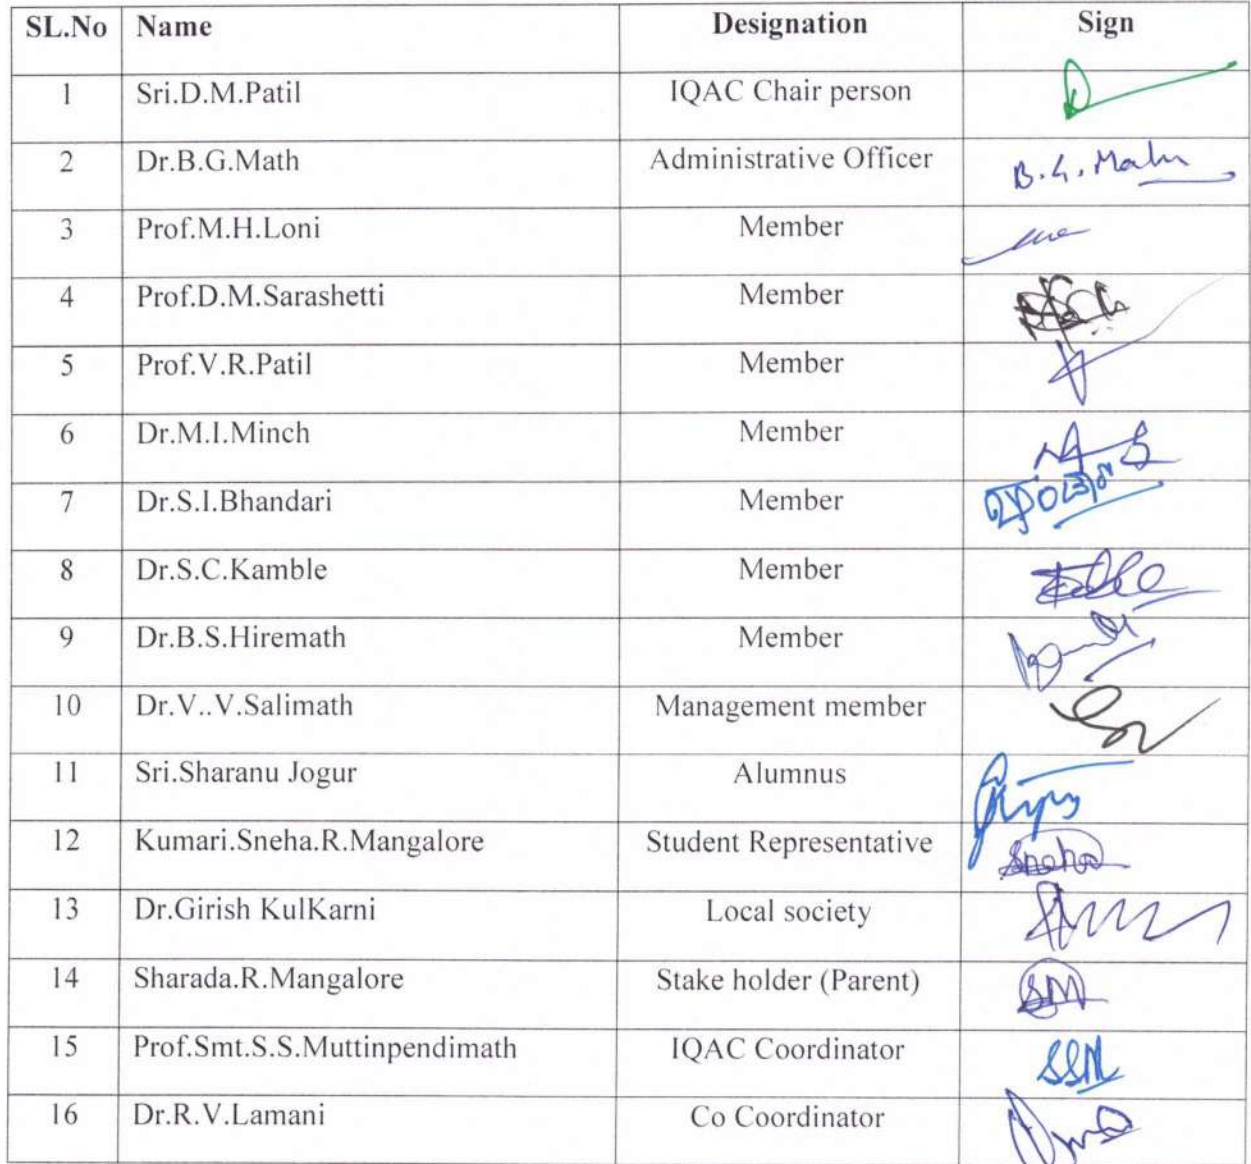 SL.No Name Designation Sign
1 Sri.D.M.Patil IQAC Chair person
2 Dr.B.G.Math Administrative Officer B.G.Math
3 Prof.M.H.Loni Member
4 Prof.D.M.Sarashetti Member
5 Prof.V.R.Patil Member
6 Dr.M.I.Minch Member
7 Dr.S.I.Bhandari Member
8 Dr.S.C.Kamble Member
9 Dr.B.S.Hiremath Member
10 Dr.V..V.Salimath Management member
11 Sri.Sharanu Jogur Alumnus
12 Kumari.Sneha.R.Mangalore Student Representative Sneha
13 Dr.Girish KulKarni Local society
14 Sharada.R.Mangalore Stake holder (Parent) SM
15 Prof.Smt.S.S.Muttinpendimath IQAC Coordinator SSM
16 Dr.R.V.Lamani Co Coordinator